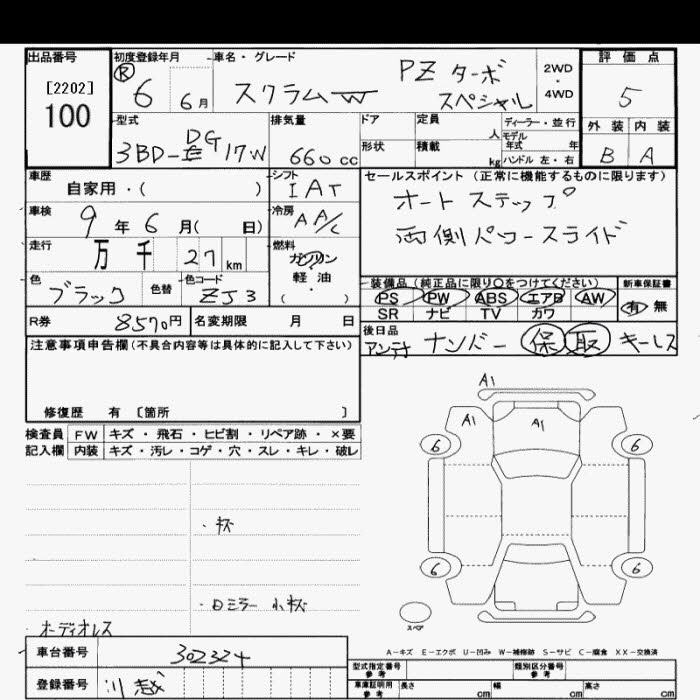 出品番号
[2202]
100
初度登録年月
R 6 6月
車名・グレード
スクラムW PZ ターボ
スペシャル
2WD
・
4WD
評価点
5
外装 内装
B A
型式
3BD-DG17W
排気量
660cc
ドア
定員
人
ディーラー・並行
モデル
年式 年
形状
積載
kg
ハンドル 左・右
車歴
自家用・( )
シフト
IAT
セールスポイント(正常に機能するものに限ります)
オートステップ
両側パワースライド
車検
9年6月( 日)
冷房
AA/C
走行
万 千 27 km
燃料
ガソリン
軽油
・
( )
色
ブラック
色替
色コード
ZJ3
装備品(純正品に限り○をつけてください)
PS PW ABS エアB AW
SR ナビ TV カワ
新車保証書
有 無
R券 8570円
名変期限 月 日
後日品
アンテナ ナンバー 保 取 キーレス
注意事項申告欄(不具合内容等は具体的に記入して下さい)
修復歴 有 〔箇所 〕
検査員
記入欄
FW キズ・飛石・ヒビ割・リペア跡・×要
内装 キズ・汚レ・コゲ・穴・スレ・キレ・破レ
・杯
・ロミラー 小杯
オーディオレス
A1
A1
A1
6
6
6
6
スペア
A-キズ E-エクボ U-凹み W-補修跡 S-サビ C-腐食 XX-交換済
車台番号
302324
登録番号
川越
型式指定番号
参考
類別区分番号
参考
車庫証明用
参考
長さ cm
幅 cm
高さ cm